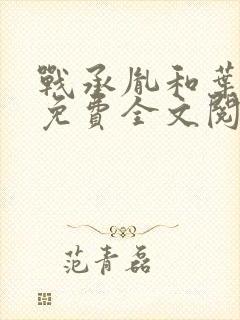 戰承胤和葉
免費全文閱
范青磊